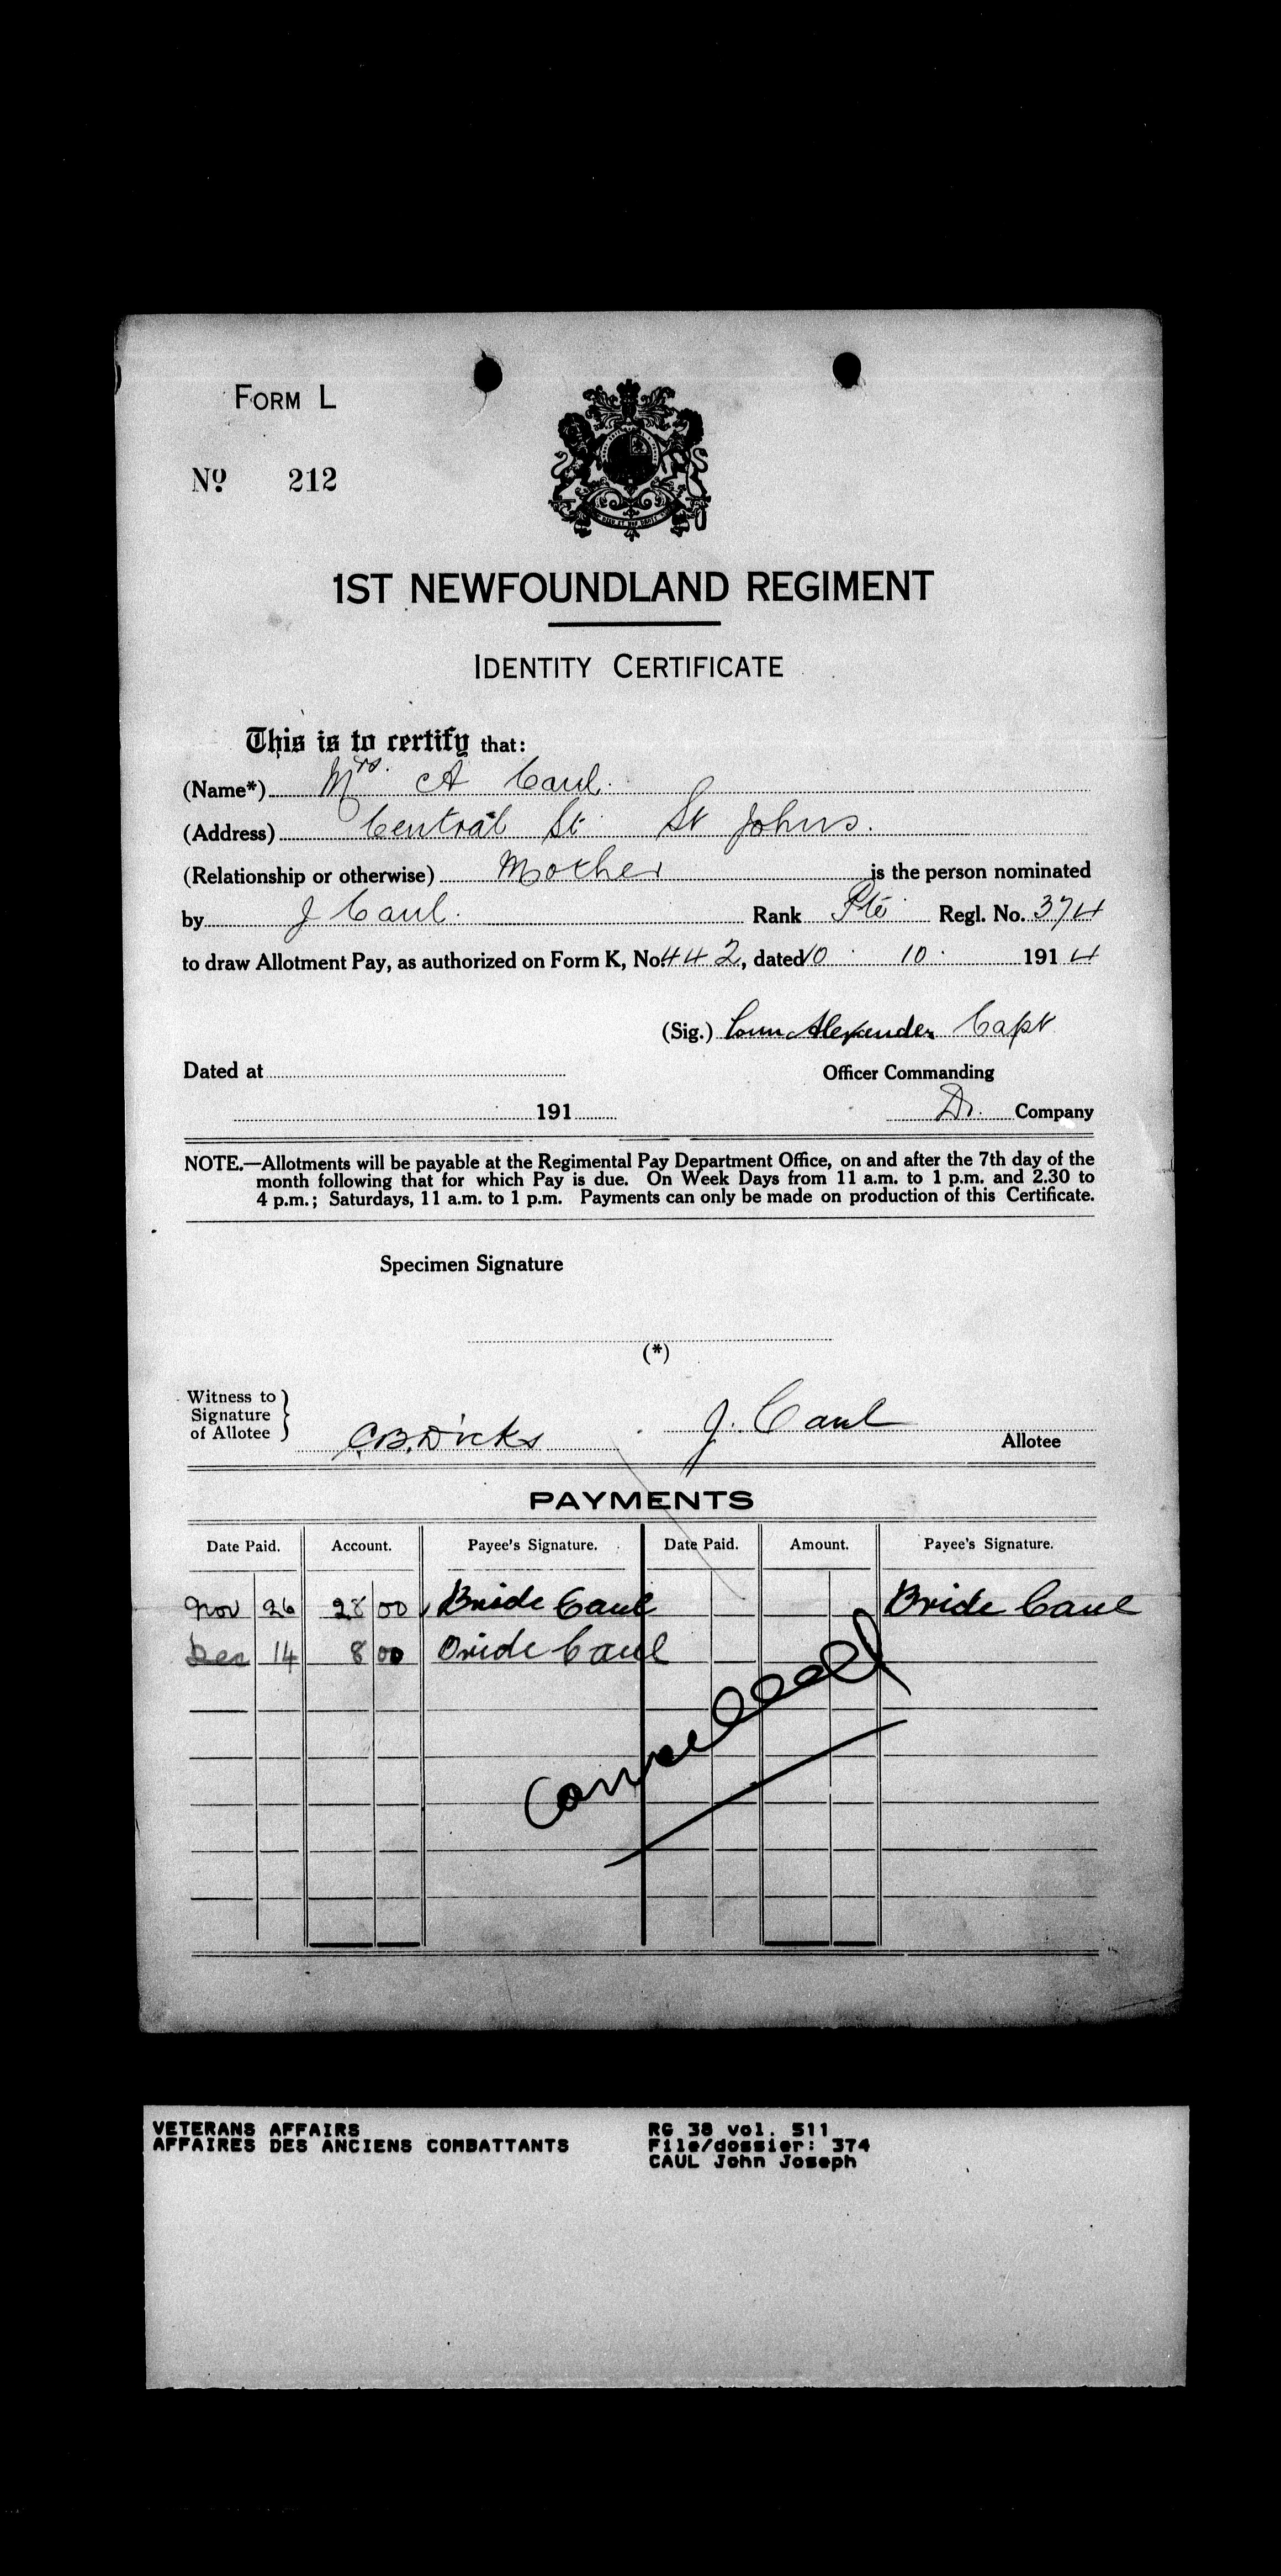 FORM L
No 212
1ST NEWFOUNDLAND REGIMENT
IDENTITY CERTIFICATE
This is to certify that:
(Name*) Mrs. A Caul.
(Address) Central St St Johns.
(Relationship or otherwise) Mother is the person nominated
by J Caul. Rank Pte Regl. No. 374
to draw Allotment Pay, as authorized on Form K, No. 442, dated 10 10 1914
(Sig.) Alexander Capt
Dated at Officer Commanding
191 Company
NOTE.—Allotments will be payable at the Regimental Pay Department Office, on and after the 7th day of the
month following that for which Pay is due. On Week Days from 11 a.m. to 1 p.m. and 2.30 to
4 p.m.; Saturdays, 11 a.m. to 1 p.m. Payments can only be made on production of this Certificate.
Specimen Signature
(*)
Witness to
Signature
of Allotee
C.B. Dicks J. Caul
Allotee
PAYMENTS
Date Paid. Account. Payee's Signature. Date Paid. Amount. Payee's Signature.
Nov 26 28 00 Bride Caul Bride Caul
Dec 14 8 00 Bride Caul
Cancelled
VETERANS AFFAIRS RG 38 vol. 511
AFFAIRES DES ANCIENS COMBATTANTS File/dossier: 374
CAUL John Joseph